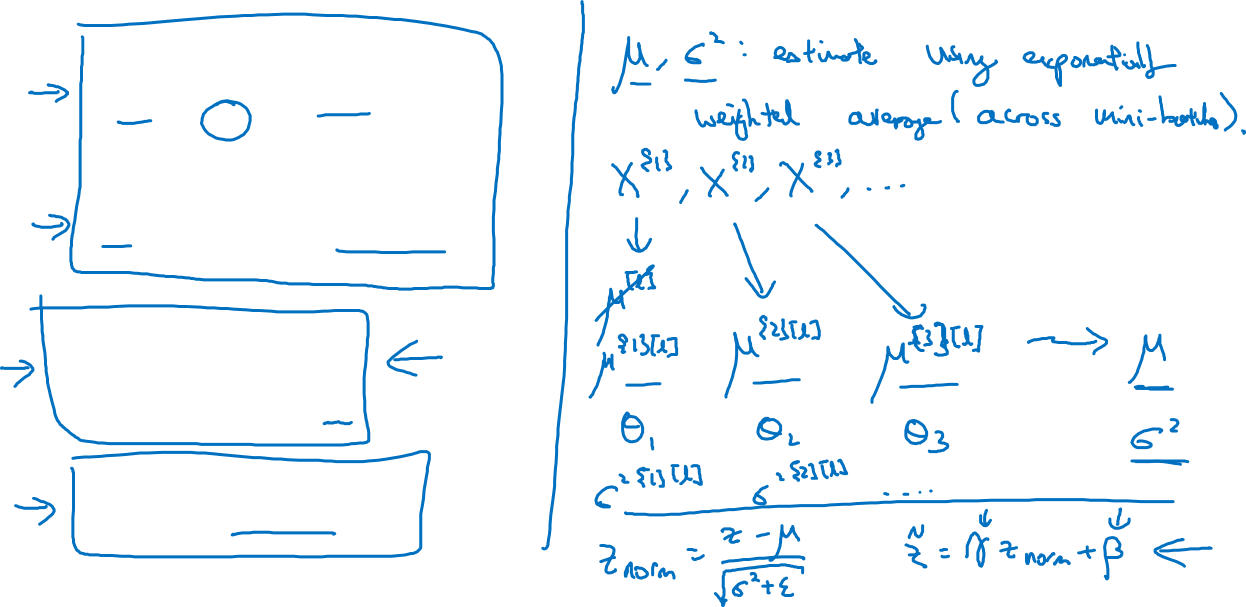 μ, σ²: estimate using exponentially
weighted average (across mini-batches).
X^{1}, X^{2}, X^{3}, ....
μ^[l]
μ^{1}[l] μ^{2}[l] μ^{3}[l] → μ
θ₁ θ₂ θ₃ σ²
σ²^{1}[l] σ²^{2}[l] ....
z_norm = (z - μ) / √(σ² + ε) z̃ = γ z_norm + β ←